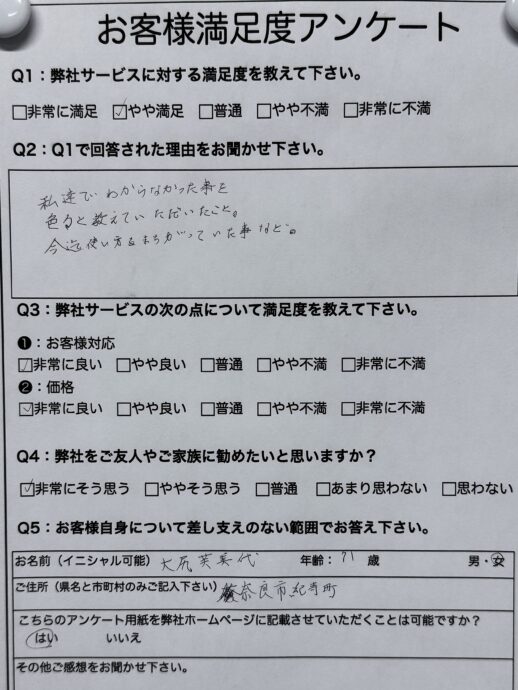 お客様満足度アンケート
Q1：弊社サービスに対する満足度を教えて下さい。
□非常に満足 ☑やや満足 □普通 □やや不満 □非常に不満
Q2：Q1で回答された理由をお聞かせ下さい。
私達で わからなかった事を
色々と教えていただいたこと。
今迄使い方もまちがっていた事など。
Q3：弊社サービスの次の点について満足度を教えて下さい。
❶：お客様対応
☑非常に良い □やや良い □普通 □やや不満 □非常に不満
❷：価格
☑非常に良い □やや良い □普通 □やや不満 □非常に不満
Q4：弊社をご友人やご家族に勧めたいと思いますか？
☑非常にそう思う □ややそう思う □普通 □あまり思わない □思わない
Q5：お客様自身について差し支えのない範囲でお答え下さい。
お名前（イニシャル可能） 大尻芙美代 年齢：71 歳 男・女
ご住所（県名と市町村のみご記入下さい） 奈良市紀寺町
こちらのアンケート用紙を弊社ホームページに記載させていただくことは可能ですか？
はい いいえ
その他ご感想をお聞かせ下さい。